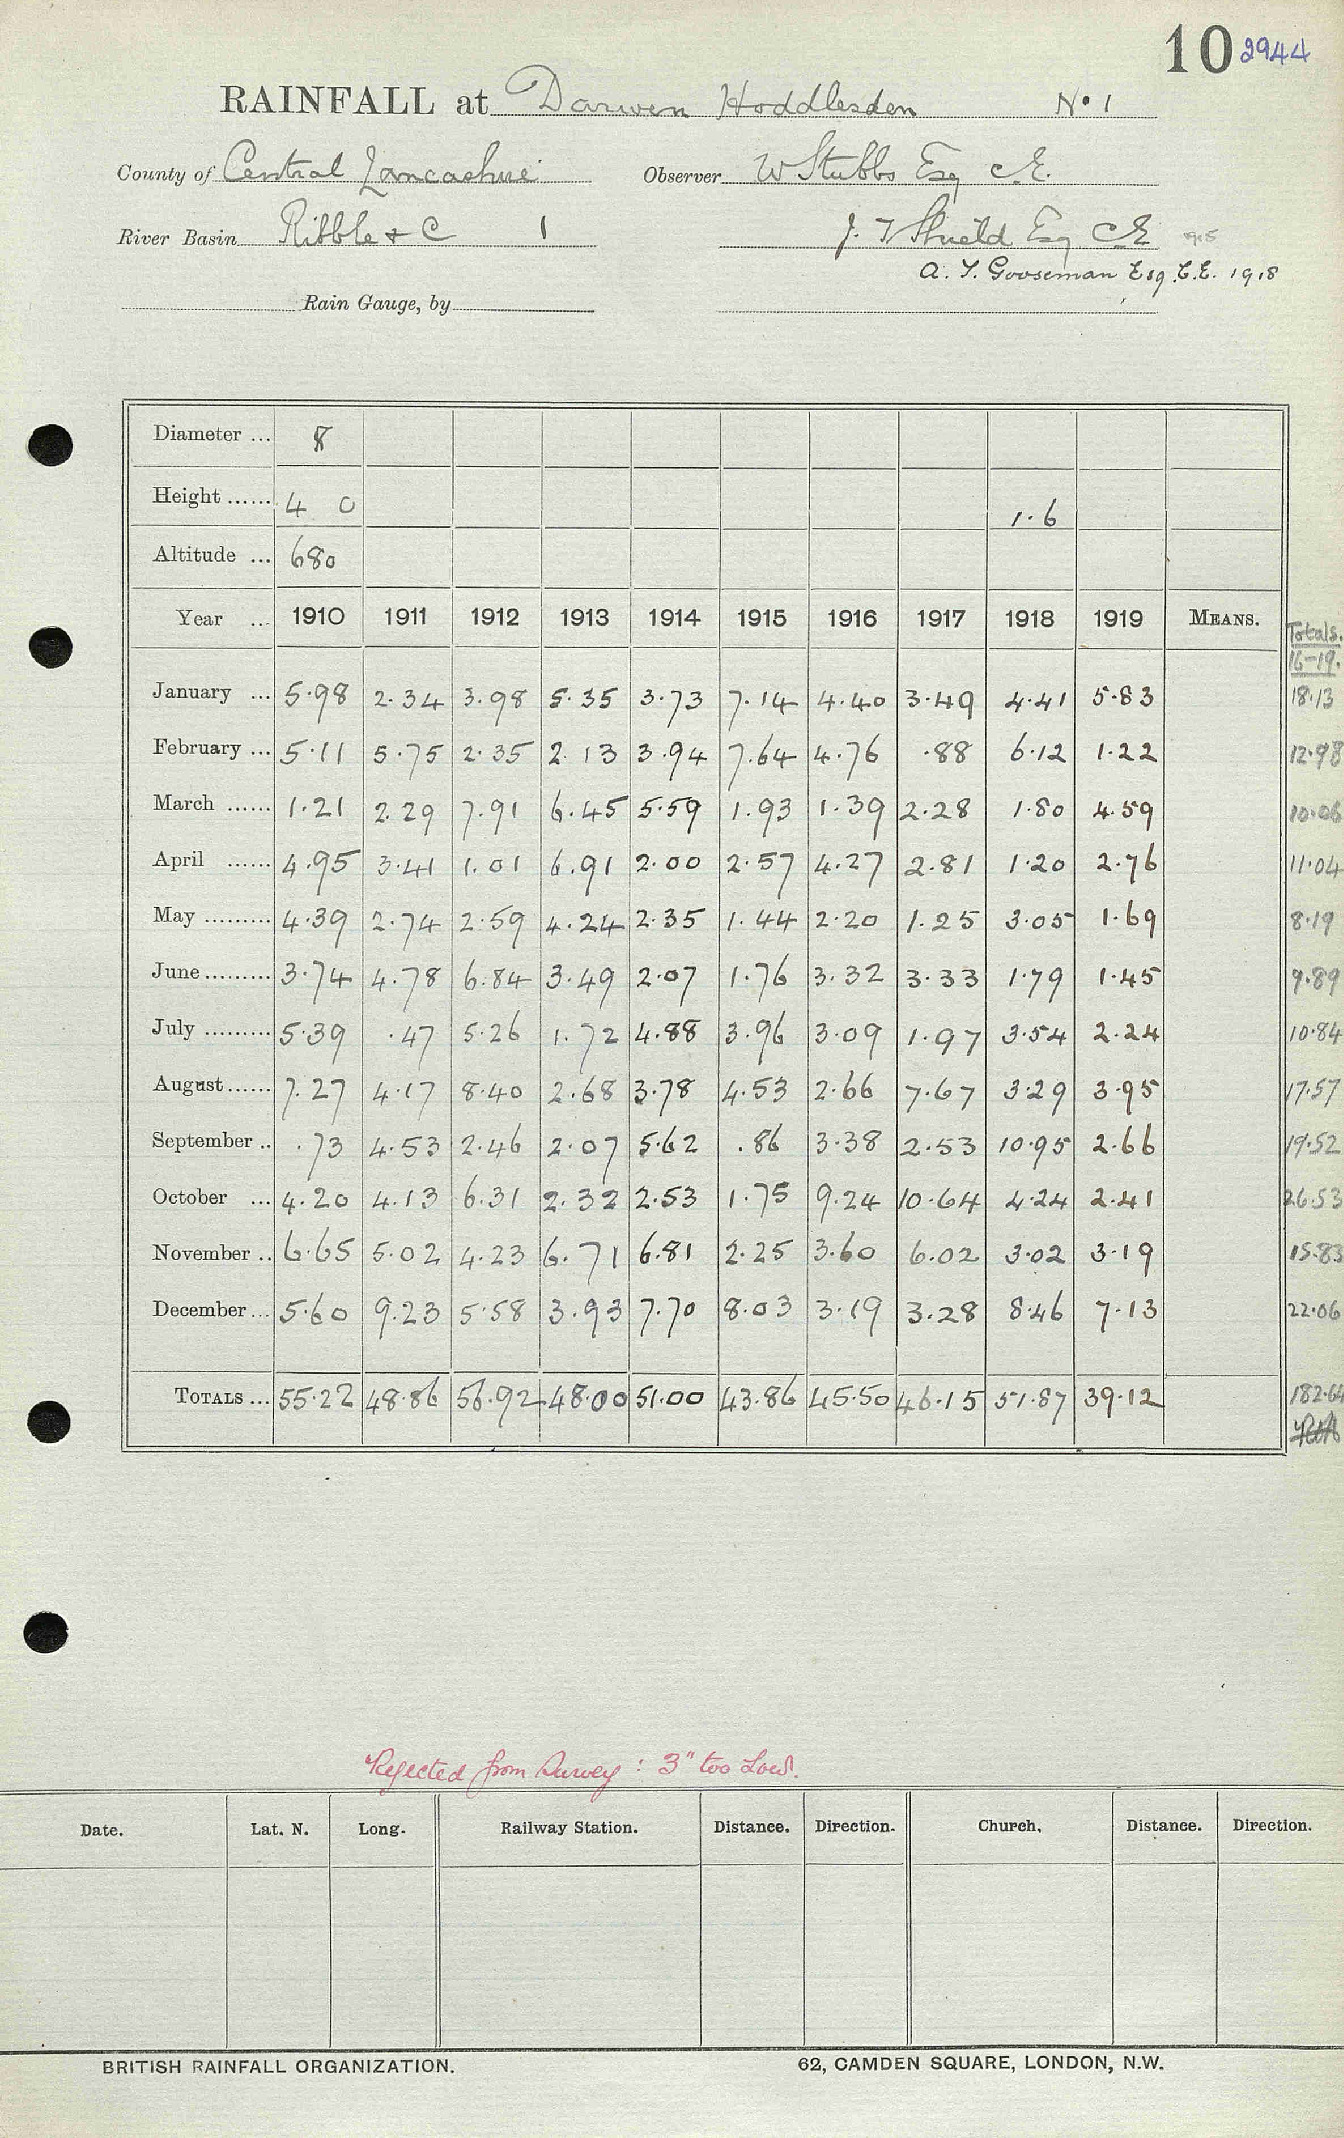 10 2944
RAINFALL at Darwen Hoddlesden No 1
County of Central Lancashire Observer W Stubbs Esq C.E.
River Basin Ribble & C 1 J. T Shield Esq C E 1915
A. T. Gooseman Esq. C.E. 1918
Rain Gauge, by
Diameter ... 8
Height ...... 4 0 1.6
Altitude ... 680
Year ... 1910 1911 1912 1913 1914 1915 1916 1917 1918 1919 MEANS. Totals. 16-19.
January ... 5.98 2.34 3.98 5.35 3.73 7.14 4.40 3.49 4.41 5.83 18.13
February ... 5.11 5.75 2.35 2.13 3.94 7.64 4.76 .88 6.12 1.22 12.98
March ...... 1.21 2.29 7.91 6.45 5.59 1.93 1.39 2.28 1.80 4.59 10.06
April ...... 4.95 3.41 1.01 6.91 2.00 2.57 4.27 2.81 1.20 2.76 11.04
May ......... 4.39 2.74 2.59 4.24 2.35 1.44 2.20 1.25 3.05 1.69 8.19
June ......... 3.74 4.78 6.84 3.49 2.07 1.76 3.32 3.33 1.79 1.45 9.89
July ......... 5.39 .47 5.26 1.72 4.88 3.96 3.09 1.97 3.54 2.24 10.84
August ...... 7.27 4.17 8.40 2.68 3.78 4.53 2.66 7.67 3.29 3.95 17.57
September .. .73 4.53 2.46 2.07 5.62 .86 3.38 2.53 10.95 2.66 19.52
October ... 4.20 4.13 6.31 2.32 2.53 1.75 9.24 10.64 4.24 2.41 26.53
November .. 6.65 5.02 4.23 6.71 6.81 2.25 3.60 6.02 3.02 3.19 15.83
December ... 5.60 9.23 5.58 3.93 7.70 8.03 3.19 3.28 8.46 7.13 22.06
TOTALS ... 55.22 48.86 56.92 48.00 51.00 43.86 45.50 46.15 51.87 39.12 182.64
Rejected from Survey : 3" too Low.
Date. Lat. N. Long. Railway Station. Distance. Direction. Church. Distance. Direction.
BRITISH RAINFALL ORGANIZATION. 62, CAMDEN SQUARE, LONDON, N.W.